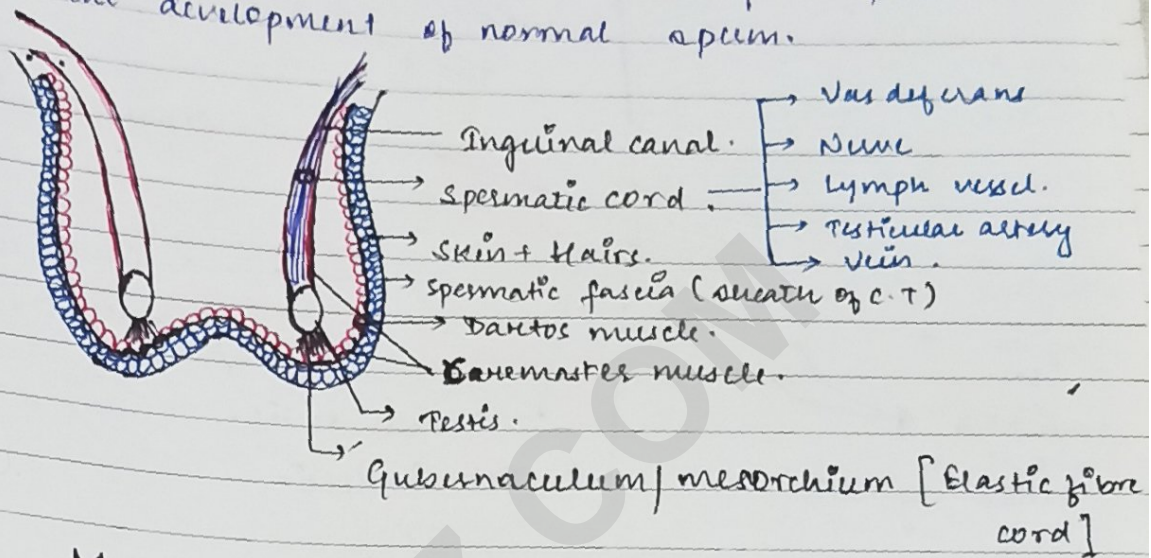 development of normal sperm.
Inguinal canal.
Spermatic cord.
Vas deferans
Nerve
Lymph vessel.
Testicular artery
vein.
Skin + Hairs.
Spermatic fascia (sheath of C.T)
Dartos muscle.
Caremaster muscle.
Testis.
Gubernaculum/mesorchium [Elastic fibre
cord]
COM